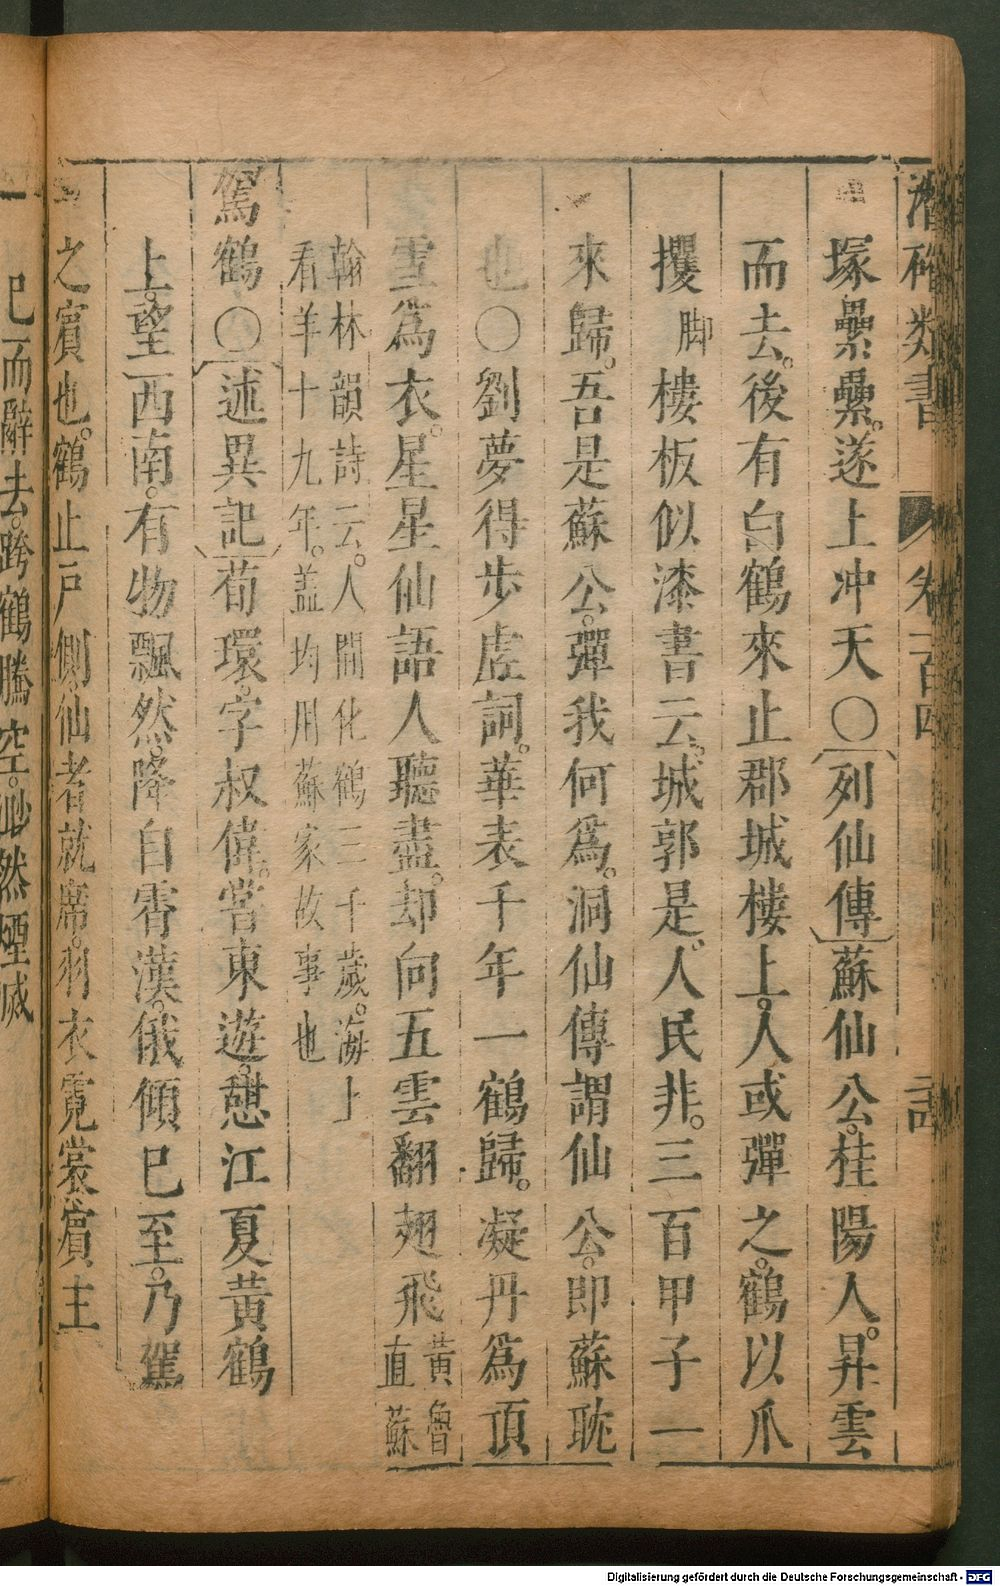 潛確類書 卷一百四
塚纍纍。遂上冲天〇列仙傳蘇仙公。桂陽人。昇雲
而去。後有白鶴來止郡城樓上。人或彈之。鶴以爪
攫脚樓板似漆書云。城郭是。人民非。三百甲子一
來歸。吾是蘇公。彈我何爲。洞仙傳謂仙公。即蘇耽
也〇劉夢得步虛詞。華表千年一鶴歸。凝丹爲頂
雪爲衣。星星仙語人聽盡。却向五雲翻翅飛黃魯直蘇
翰林韻詩云。人間化鶴三千歲。海上
看羊十九年。蓋均用蘇家故事也
駕鶴〇述異記荀環。字叔偉。嘗東遊。憇江夏黃鶴
上。望西南。有物飄然。降自霄漢。俄傾已至。乃駕
之賓也。鶴止戸側。仙者就席。羽衣霓裳。賓主
已而辭去。跨鶴騰空。渺然煙滅
Digitalisierung gefördert durch die Deutsche Forschungsgemeinschaft - DFG